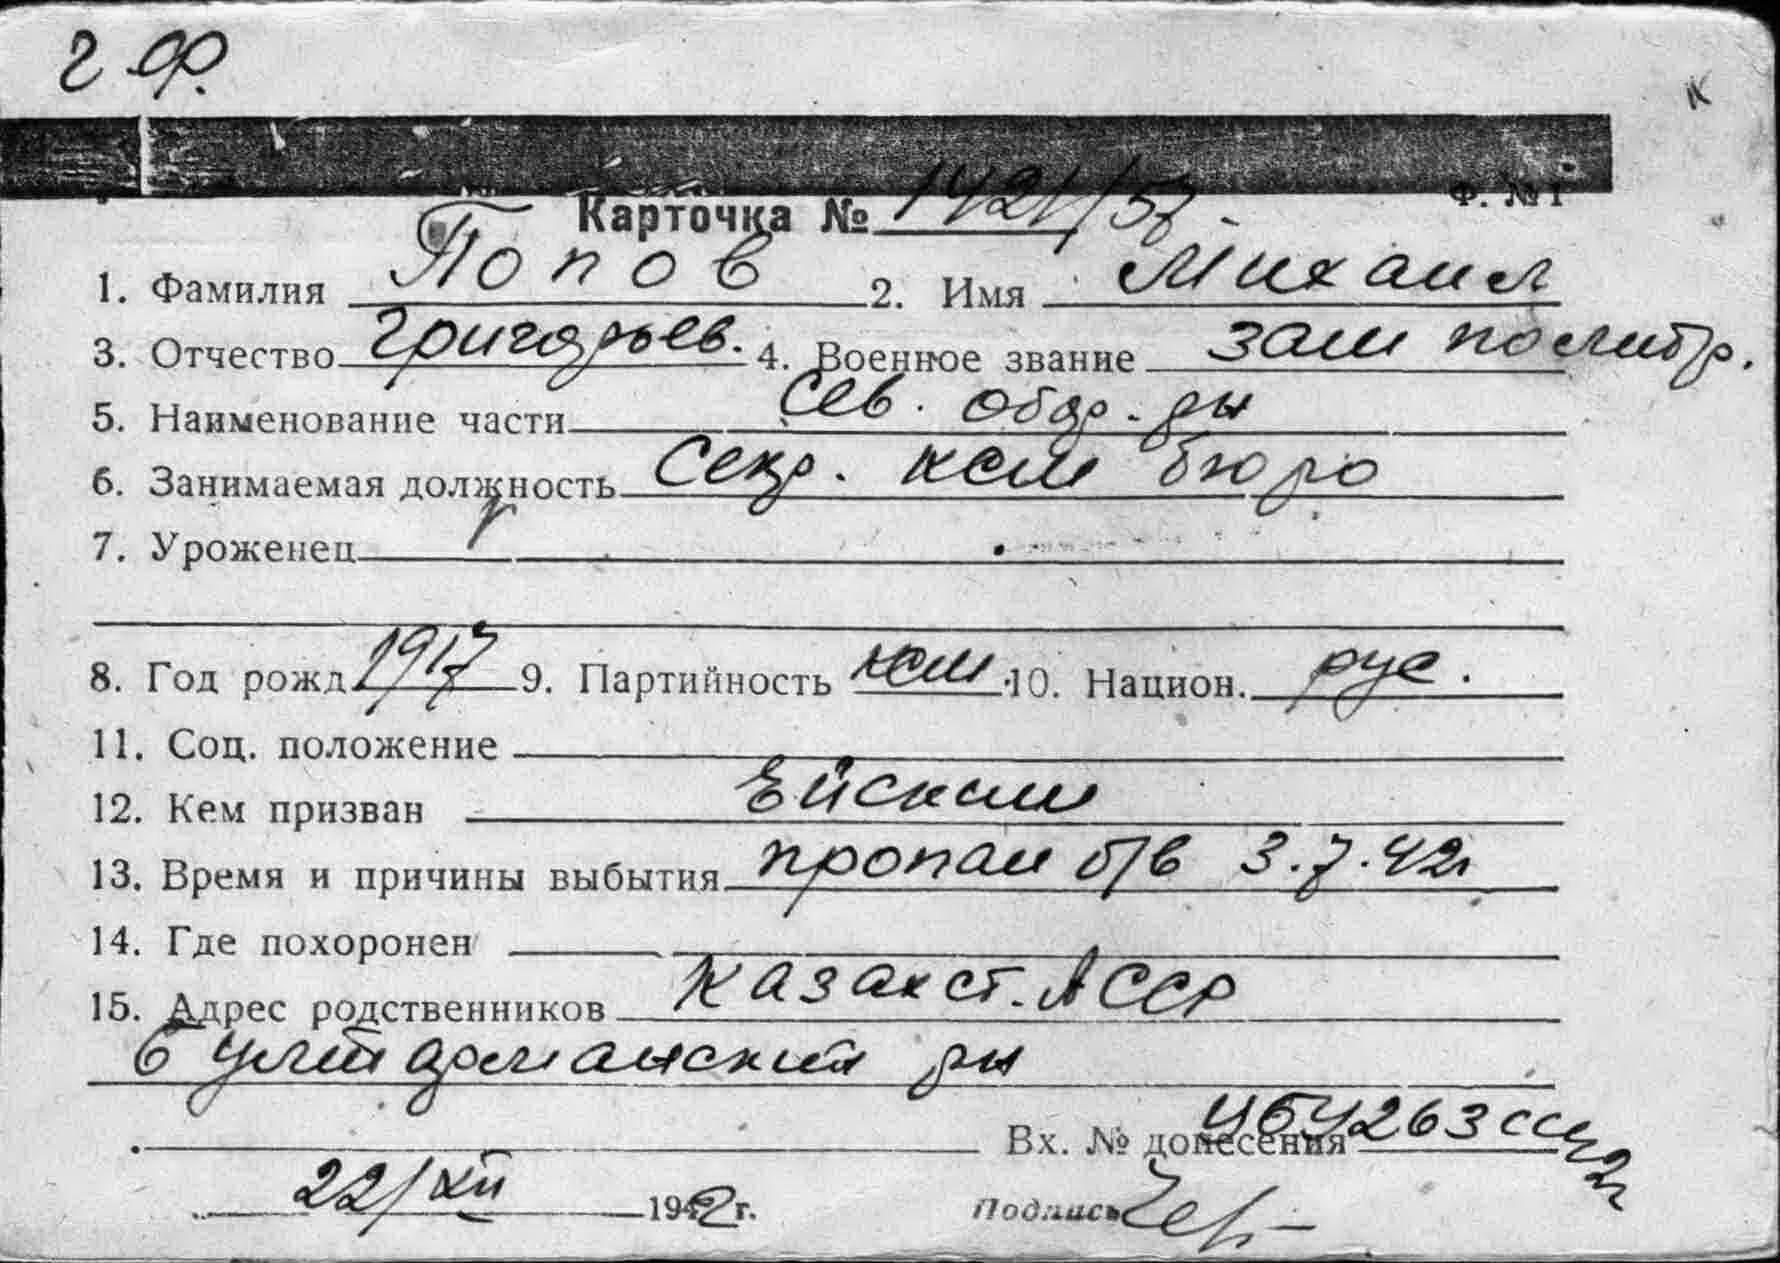 г Ф.
к
Ф. № 1
Карточка № 1421/57.
1. Фамилия Попов 2. Имя Михаил
3. Отчество Григорьев. 4. Военное звание зам политр.
5. Наименование части Сев. обор. р-н
6. Занимаемая должность Секр. ксм бюро
7. Уроженец
8. Год рожд. 1917 9. Партийность ксм 10. Национ. рус.
11. Соц. положение
12. Кем призван Ейским
13. Время и причины выбытия пропал б/в 3.7.42г
14. Где похоронен
15. Адрес родственников Казахст. АССР
рн
Вх. № донесения
22/XII 1942 г. Подпись